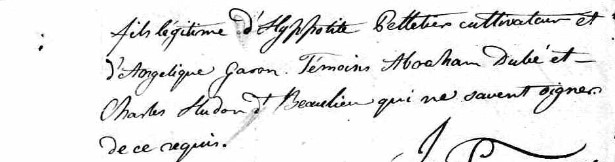 fils légitime d'Hyppolite Pelletier cultivateur et
d'Angelique Garon. Témoins Abraham Dubé et
Charles Hudon dt Beaulieu qui ne savent signer
de ce requis.